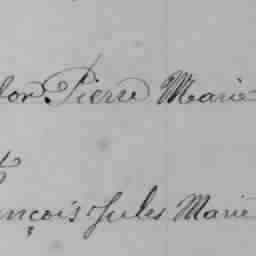 dor Pierre Marie
nçois Jules Marie